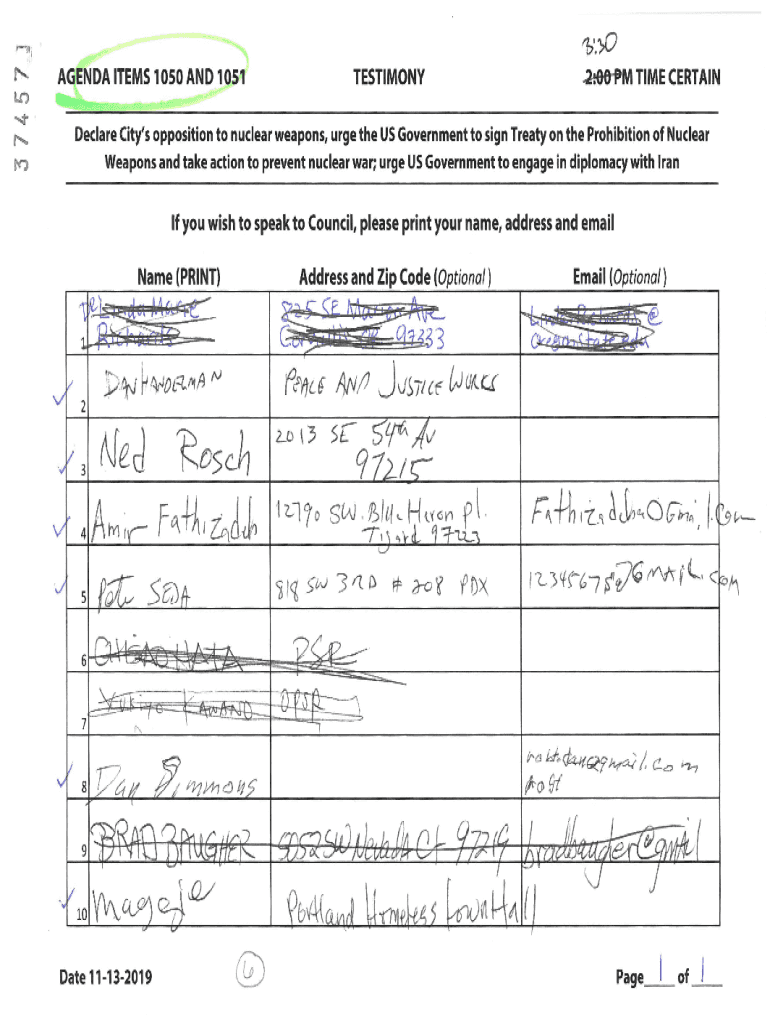 3:30
37457
AGENDA ITEMS 1050 AND 1051 TESTIMONY 2:00 PM TIME CERTAIN
Declare City's opposition to nuclear weapons, urge the US Government to sign Treaty on the Prohibition of Nuclear
Weapons and take action to prevent nuclear war; urge US Government to engage in diplomacy with Iran
If you wish to speak to Council, please print your name, address and email
Name (PRINT) Address and Zip Code (Optional) Email (Optional)
Linda Marie 825 SE Marion Ave
1 Richards 97333
2 DAN HANDELMAN PEACE AND JUSTICE WORKS
3 Ned Rosch 2013 SE 54th Av
97215
4 Amir Fathizadeh 12790 SW. Blue Heron pl.
Tigard 97223
5 Pete SEDA 818 SW 3RD # 208 PDX
6 PSR
7 Yukiyo KAWANO OPSR
8 Dan Simmons
9 BRAD BAUGHER 5052 SW Nevada Ct 97219 bradbaugher@gmail
10 Portland Homeless Town Hall
Date 11-13-2019 6 Page 1 of 1